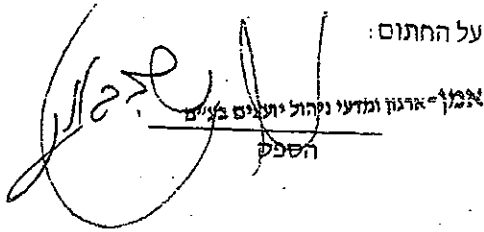 על החתום:
אמן-ארגון ומדעי ניהול יועצים בע״מ
הספק